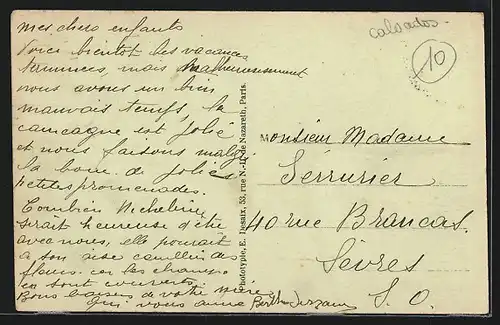 Mes chers enfants
Voici bientôt les vacances
terminées, mais malheureusement
nous avons un bien
mauvais temps, la
campagne est jolie
et nous faisons malgré
la boue de jolies
petites promenades.
Combien Micheline
serait heureuse d'être
avec nous, elle pourrait
à son aise cueillir des
fleurs car les champs
en sont couverts.
Bons baisers de votre mère
qui vous aime Berthe
Phototypie, E. Desaix, 53, rue N.-D. de Nazareth, Paris.
Calvados
10
Monsieur Madame
Serrurier
40 rue Brancas
Sèvres
S. O.